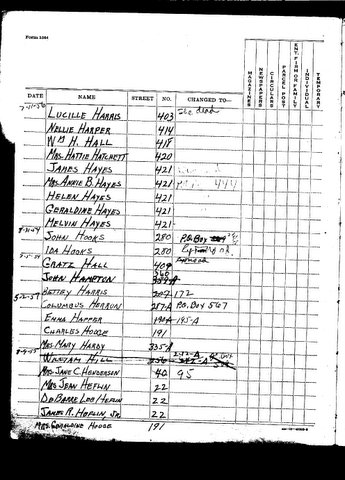 Form 1564
DATE NAME STREET NO. CHANGED TO— MAGAZINES NEWSPAPERS CIRCULARS PARCEL POST ENT. FIRM OR FAMILY INDIVIDUAL TEMPORARY
LUCILLE HARRIS 403
NELLIE HARPER 414
Wm H. HALL 418
MRS. HATTIE HATCHETT 420
JAMES HAYES 421
MRS. ANNIE B. HAYES 421 444
HELEN HAYES 421
GERALDINE HAYES 421
MELVIN HAYES 421
JOHN HOOKS 280 P.O. Box
IDA HOOKS 280
GRATZ HALL
JOHN HAMPTON
5-22-57 BETTY HARRIS 207 172
COLUMBUS HERRON 217-A P.O. Box 567
EMMA HOPPER 195-A
CHARLES HOOZE 191
MRS. MARY HARDY 335-A
HILL
MRS. JANE C. HENDERSON 40 95
MRS JEAN HEFLIN 22
DEBARRE LEE HEFLIN 22
JAMES R. HEFLIN, JR. 22
MRS. GERALDINE HOOGE 191